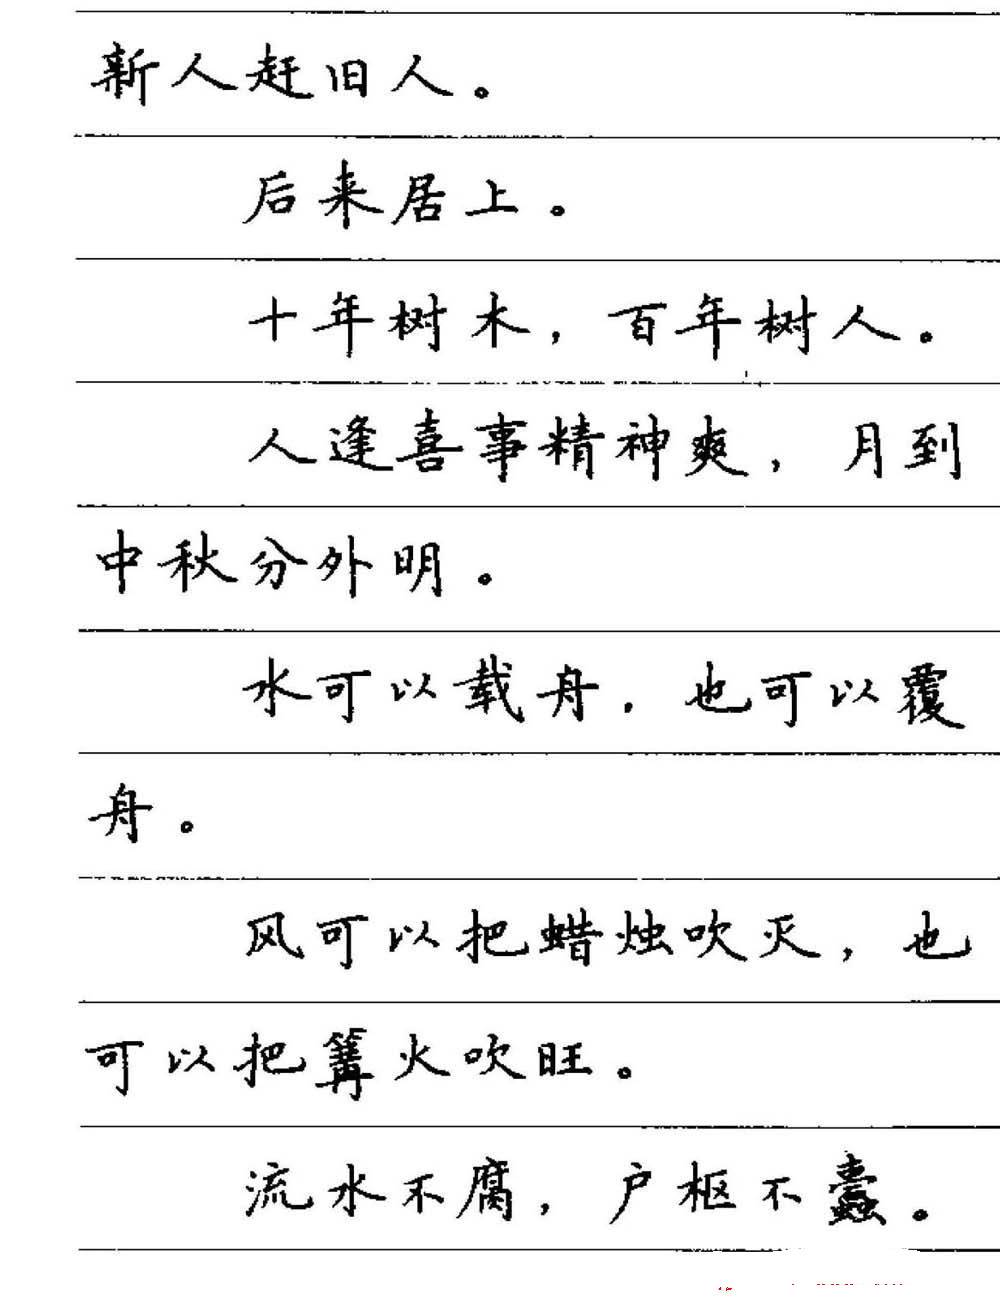 新人赶旧人。
后来居上。
十年树木，百年树人。
人逢喜事精神爽，月到
中秋分外明。
水可以载舟，也可以覆
舟。
风可以把蜡烛吹灭，也
可以把篝火吹旺。
流水不腐，户枢不蠹。